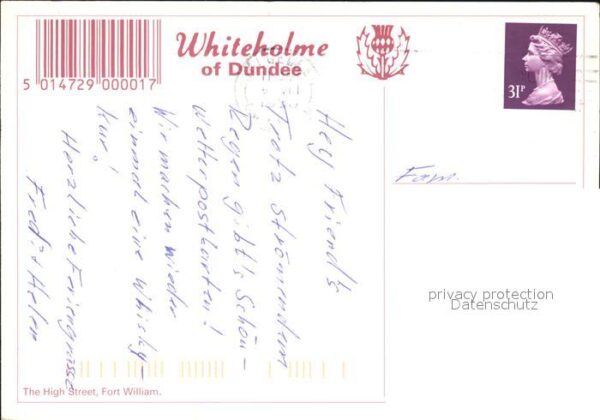 Whiteholme
of Dundee
5 014729 000017
31P
Hey Friends
Trotz Strömendem
Regen gibt's Schön-
wetterpostkarten!
Wir machen wieder
einmal eine Whisky-
kur!
Herzliche Feriengrüsse
Fredi & Helen
Fam.
privacy protection
Datenschutz
The High Street, Fort William.